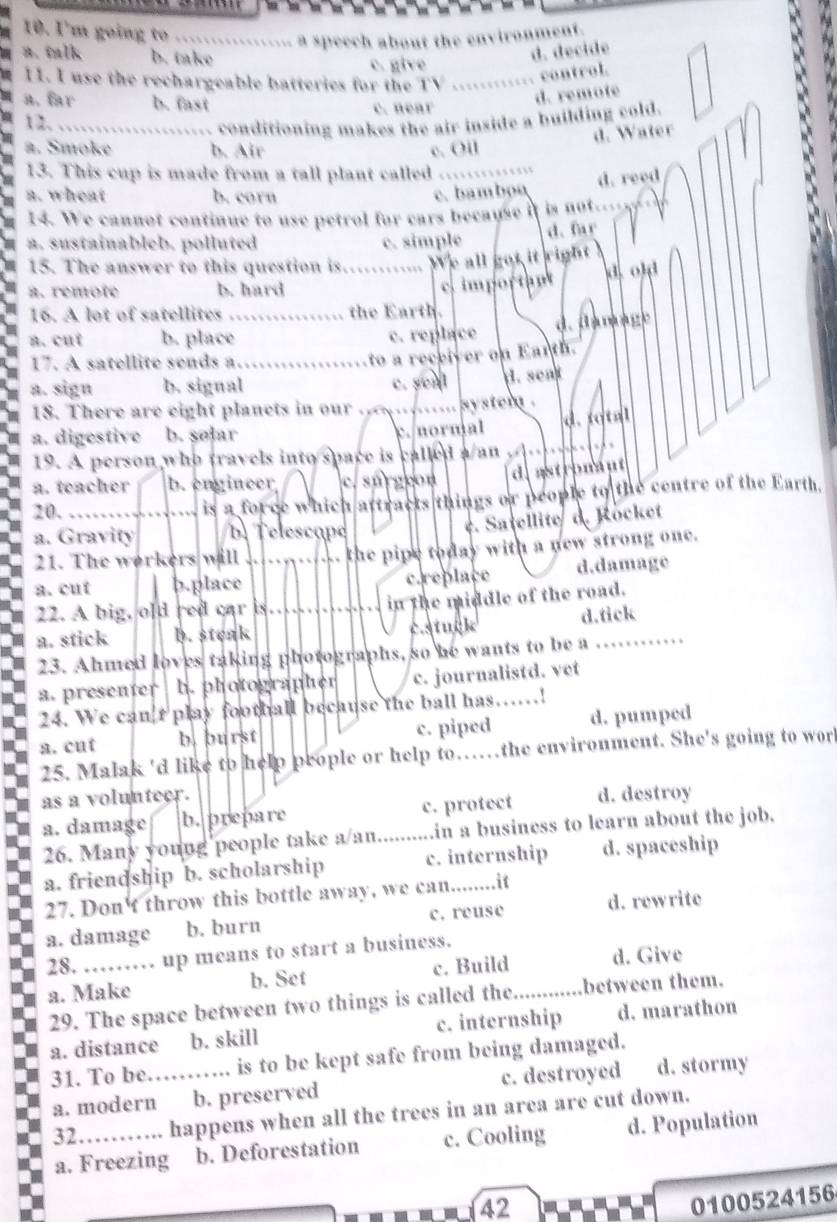 10. I'm going to ................. a speech about the environment.
a. talk b. take c. give d. decide
11. I use the rechargeable batteries for the TV ............ control.
a. far b. fast c. near d. remote
12. ...................... conditioning makes the air inside a building cold.
a. Smoke b. Air c. Oil d. Water
13. This cup is made from a tall plant called ..............
a. wheat b. corn c. bambou d. reed
14. We cannot continue to use petrol for cars because it is not...........
a. sustainableb. polluted c. simple d. far
15. The answer to this question is............ We all got it right
a. remote b. hard c. important d. old
16. A lot of satellites ................ the Earth.
a. cut b. place c. replace d. damage
17. A satellite sends a...................to a receiver on Earth.
a. sign b. signal c. seal d. seat
18. There are eight planets in our .............. system .
a. digestive b. solar c. normal d. total
19. A person who travels into space is called a/an ...............
a. teacher b. engineer c. surgeon d. astronaut
20. .................. is a force which attracts things or people to the centre of the Earth.
a. Gravity b. Telescope c. Satellite d. Rocket
21. The workers will .............. the pipe today with a new strong one.
a. cut b.place c.replace d.damage
22. A big, old red car is................ in the middle of the road.
a. stick b. steak c.stuck d.tick
23. Ahmed loves taking photographs, so he wants to be a ............
a. presenter b. photographer c. journalistd. vet
24. We can't play football because the ball has......!
a. cut b. burst c. piped d. pumped
25. Malak 'd like to help people or help to......the environment. She's going to worl
as a volunteer.
a. damage b. prepare c. protect d. destroy
26. Many young people take a/an..........in a business to learn about the job.
a. friendship b. scholarship c. internship d. spaceship
27. Don't throw this bottle away, we can........it
a. damage b. burn c. reuse d. rewrite
28. .......... up means to start a business.
a. Make b. Set c. Build d. Give
29. The space between two things is called the............between them.
a. distance b. skill c. internship d. marathon
31. To be............ is to be kept safe from being damaged.
a. modern b. preserved c. destroyed d. stormy
32............ happens when all the trees in an area are cut down.
a. Freezing b. Deforestation c. Cooling d. Population
42
0100524156